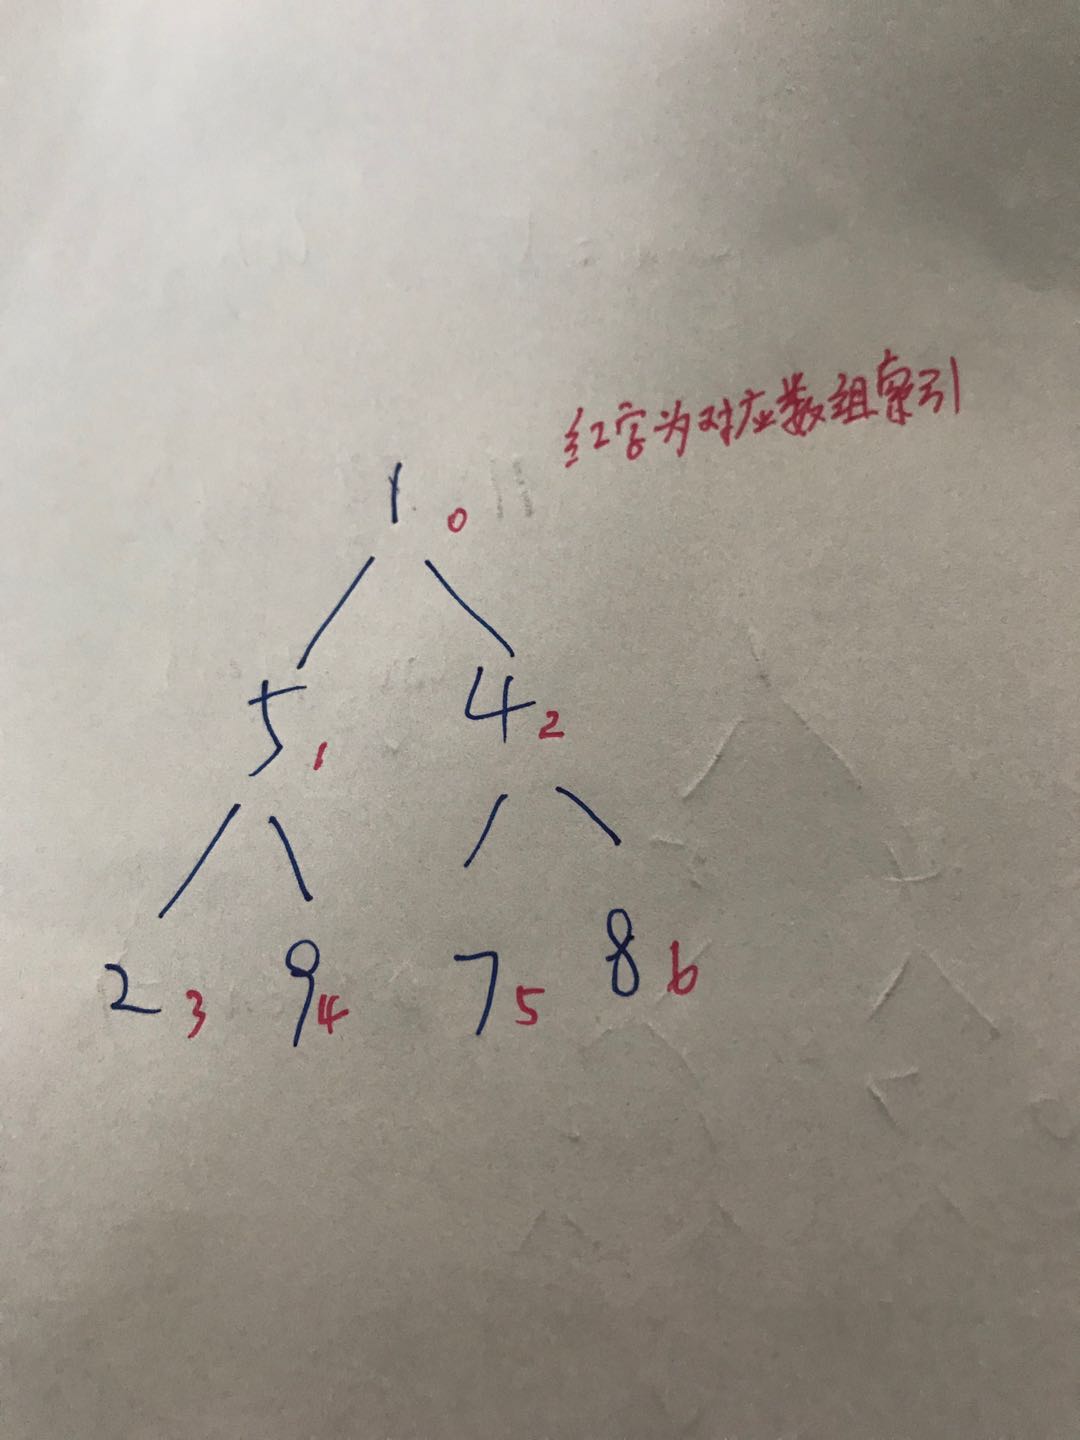 红字为对应数组索引
1 0
5 1 4 2
2 3 9 4 7 5 8 6